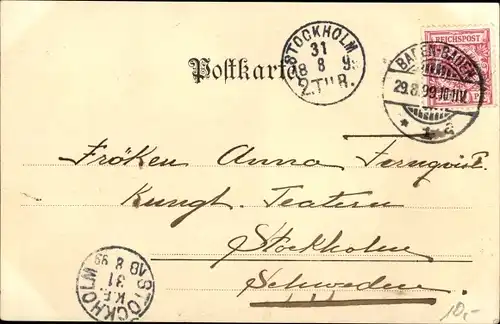 STOCKHOLM
31
8
2.TUR.
REICHSPOST
BADEN-BADEN
29.8.99.10-11V.
* 1. a
Postkarte
Fröken Anna
Kungl. Teatern
Stockholm
Schweden
STOCKHOLM
K.E.
31
8 99
10,-